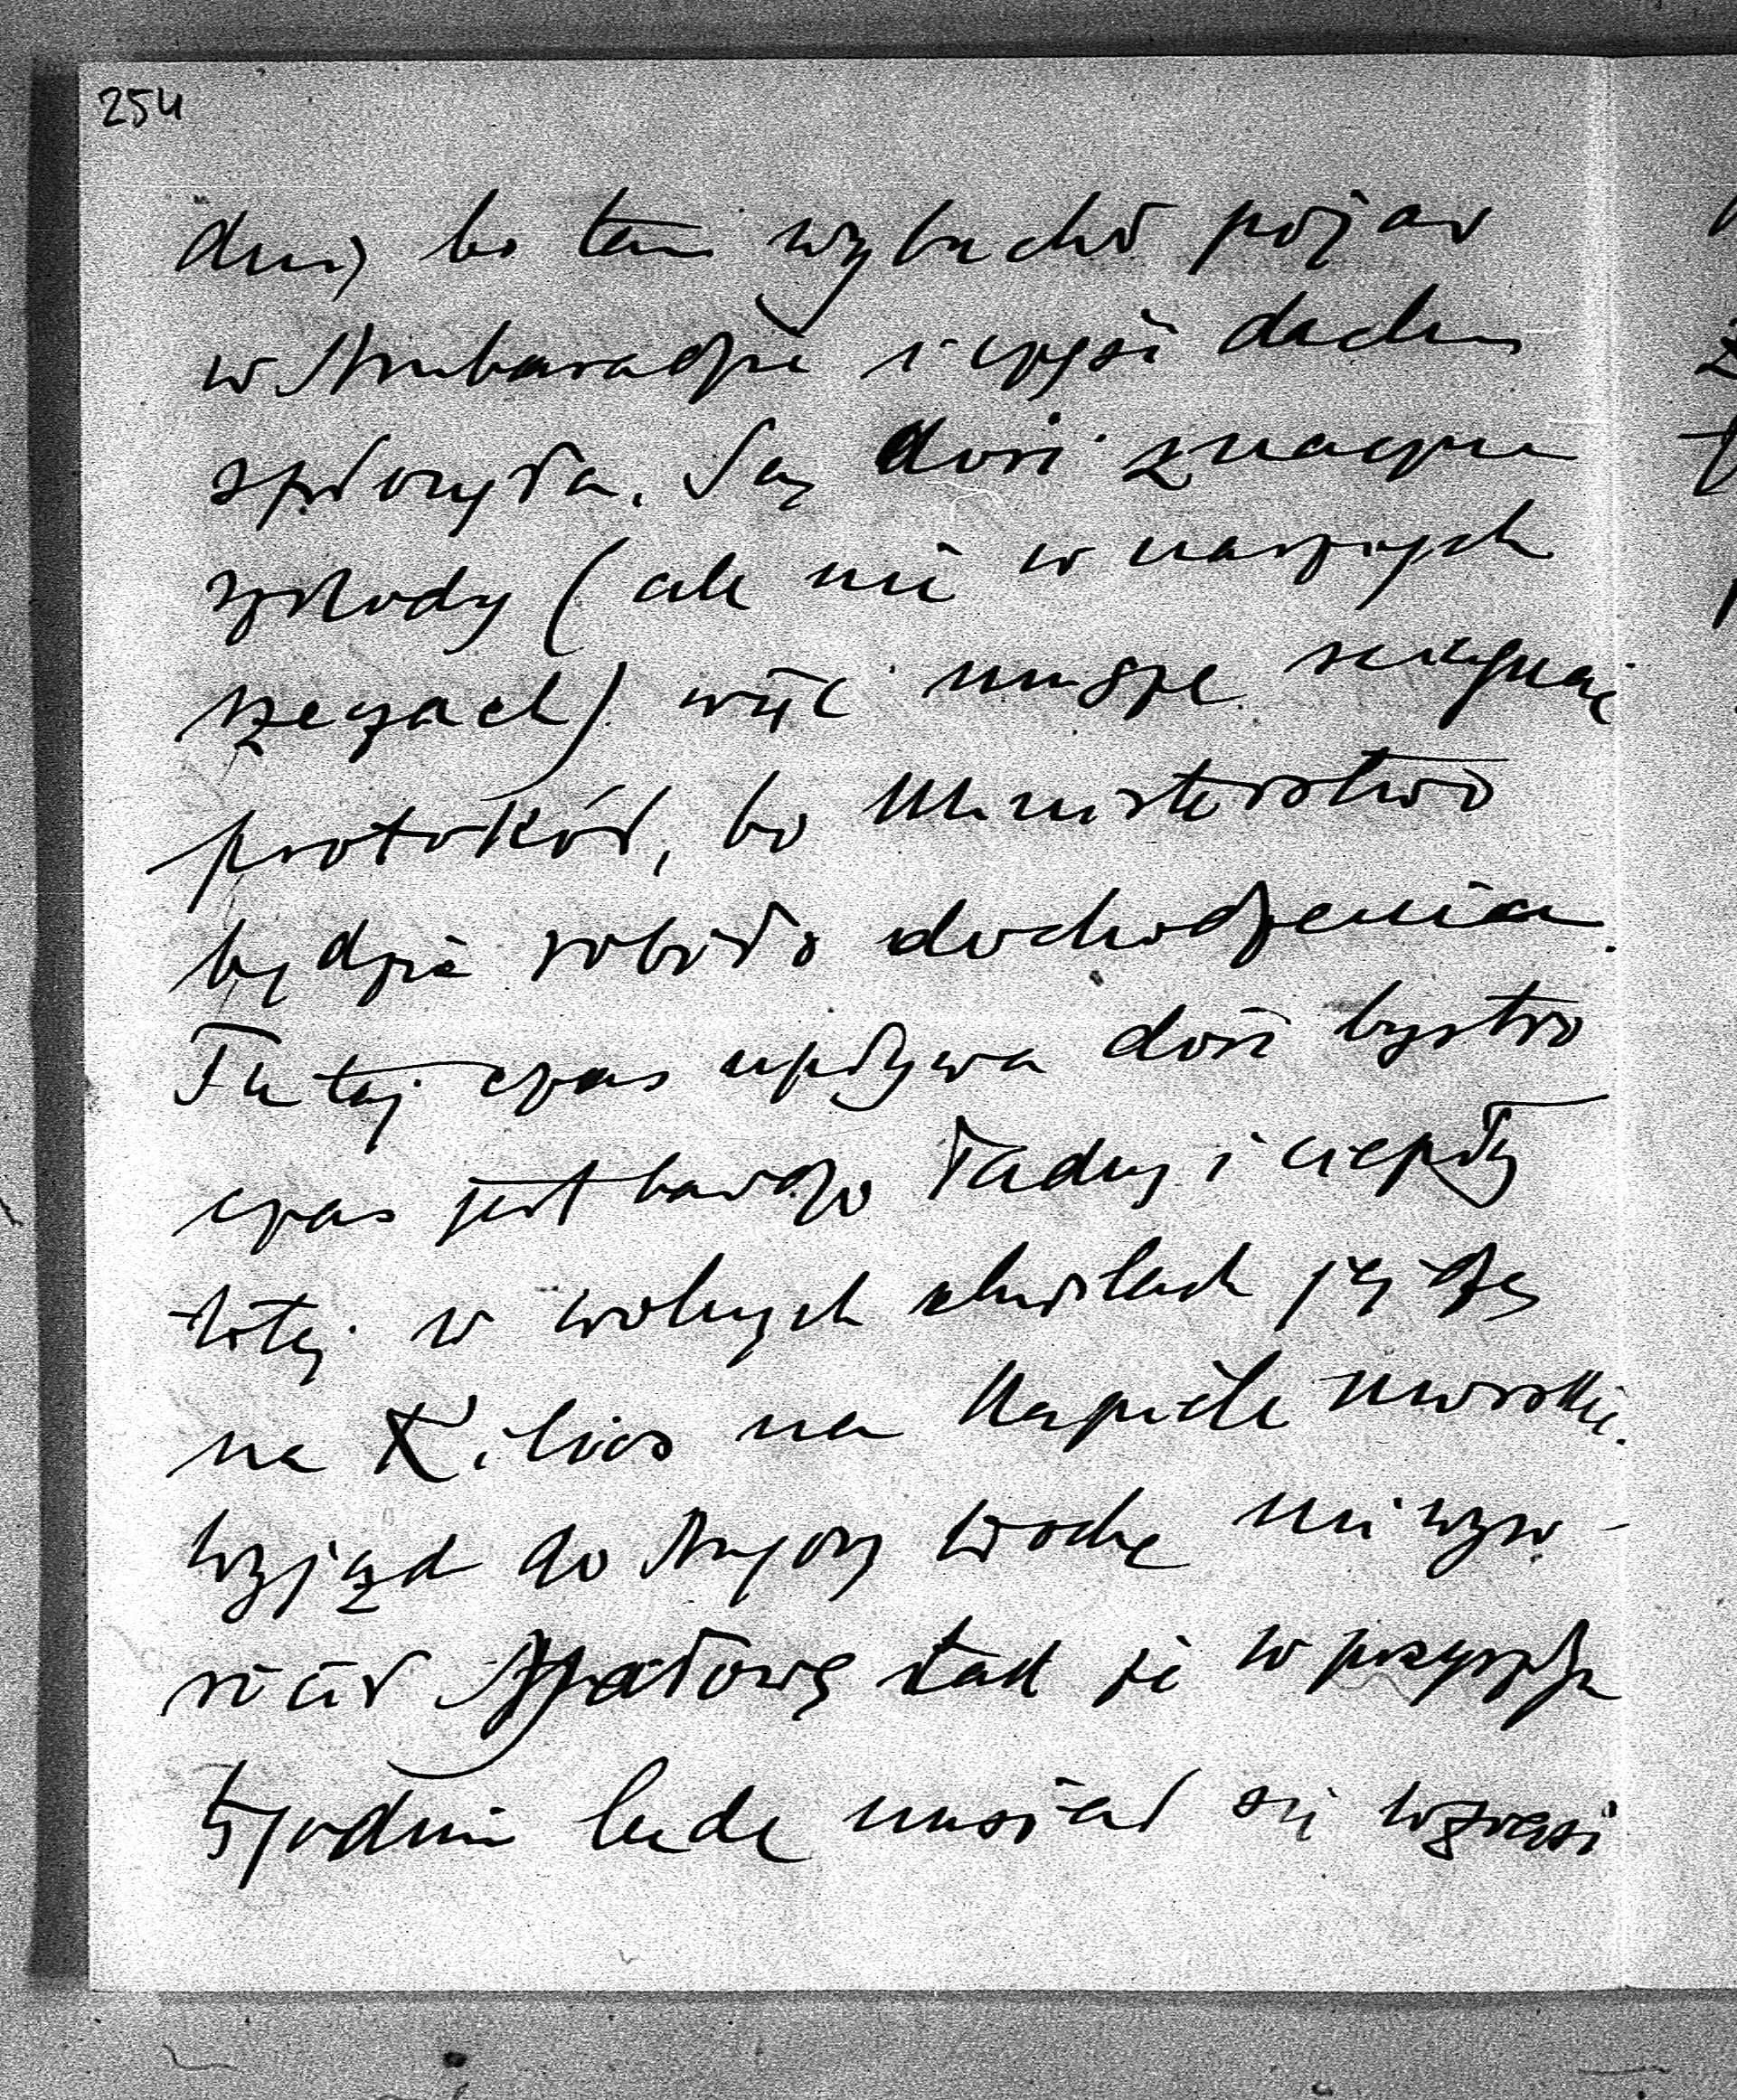 254
dną bo tam wybuchł pożar
w Ambasadzie i część dachu
spłonęła. Są dość znaczne
szkody (ale nie w naszych
rzeczach) więc muszę ściągnąć
protokół, bo Ministerstwo
będzie robiło dochodzenia.
Tutaj czas upływa dość bystro
czas jest bardzo ładny i ciepły
toteż w wolnych chwilach jeżdżę
na Kilios na kąpiele morskie.
Wyjazd do Angory trochę mi wyw-
rócił tak że w przyszłym
tygodniu będę musiał się wziąść